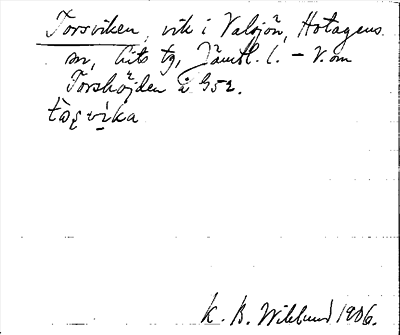 Torsviken, vik i Valsjön, Hotagens
sn, Lits tg, Jämtl. l. – V. om
Torshöjden å G52.
tɷ̀ʂvi̭ka
K. B. Wiklund 1906.